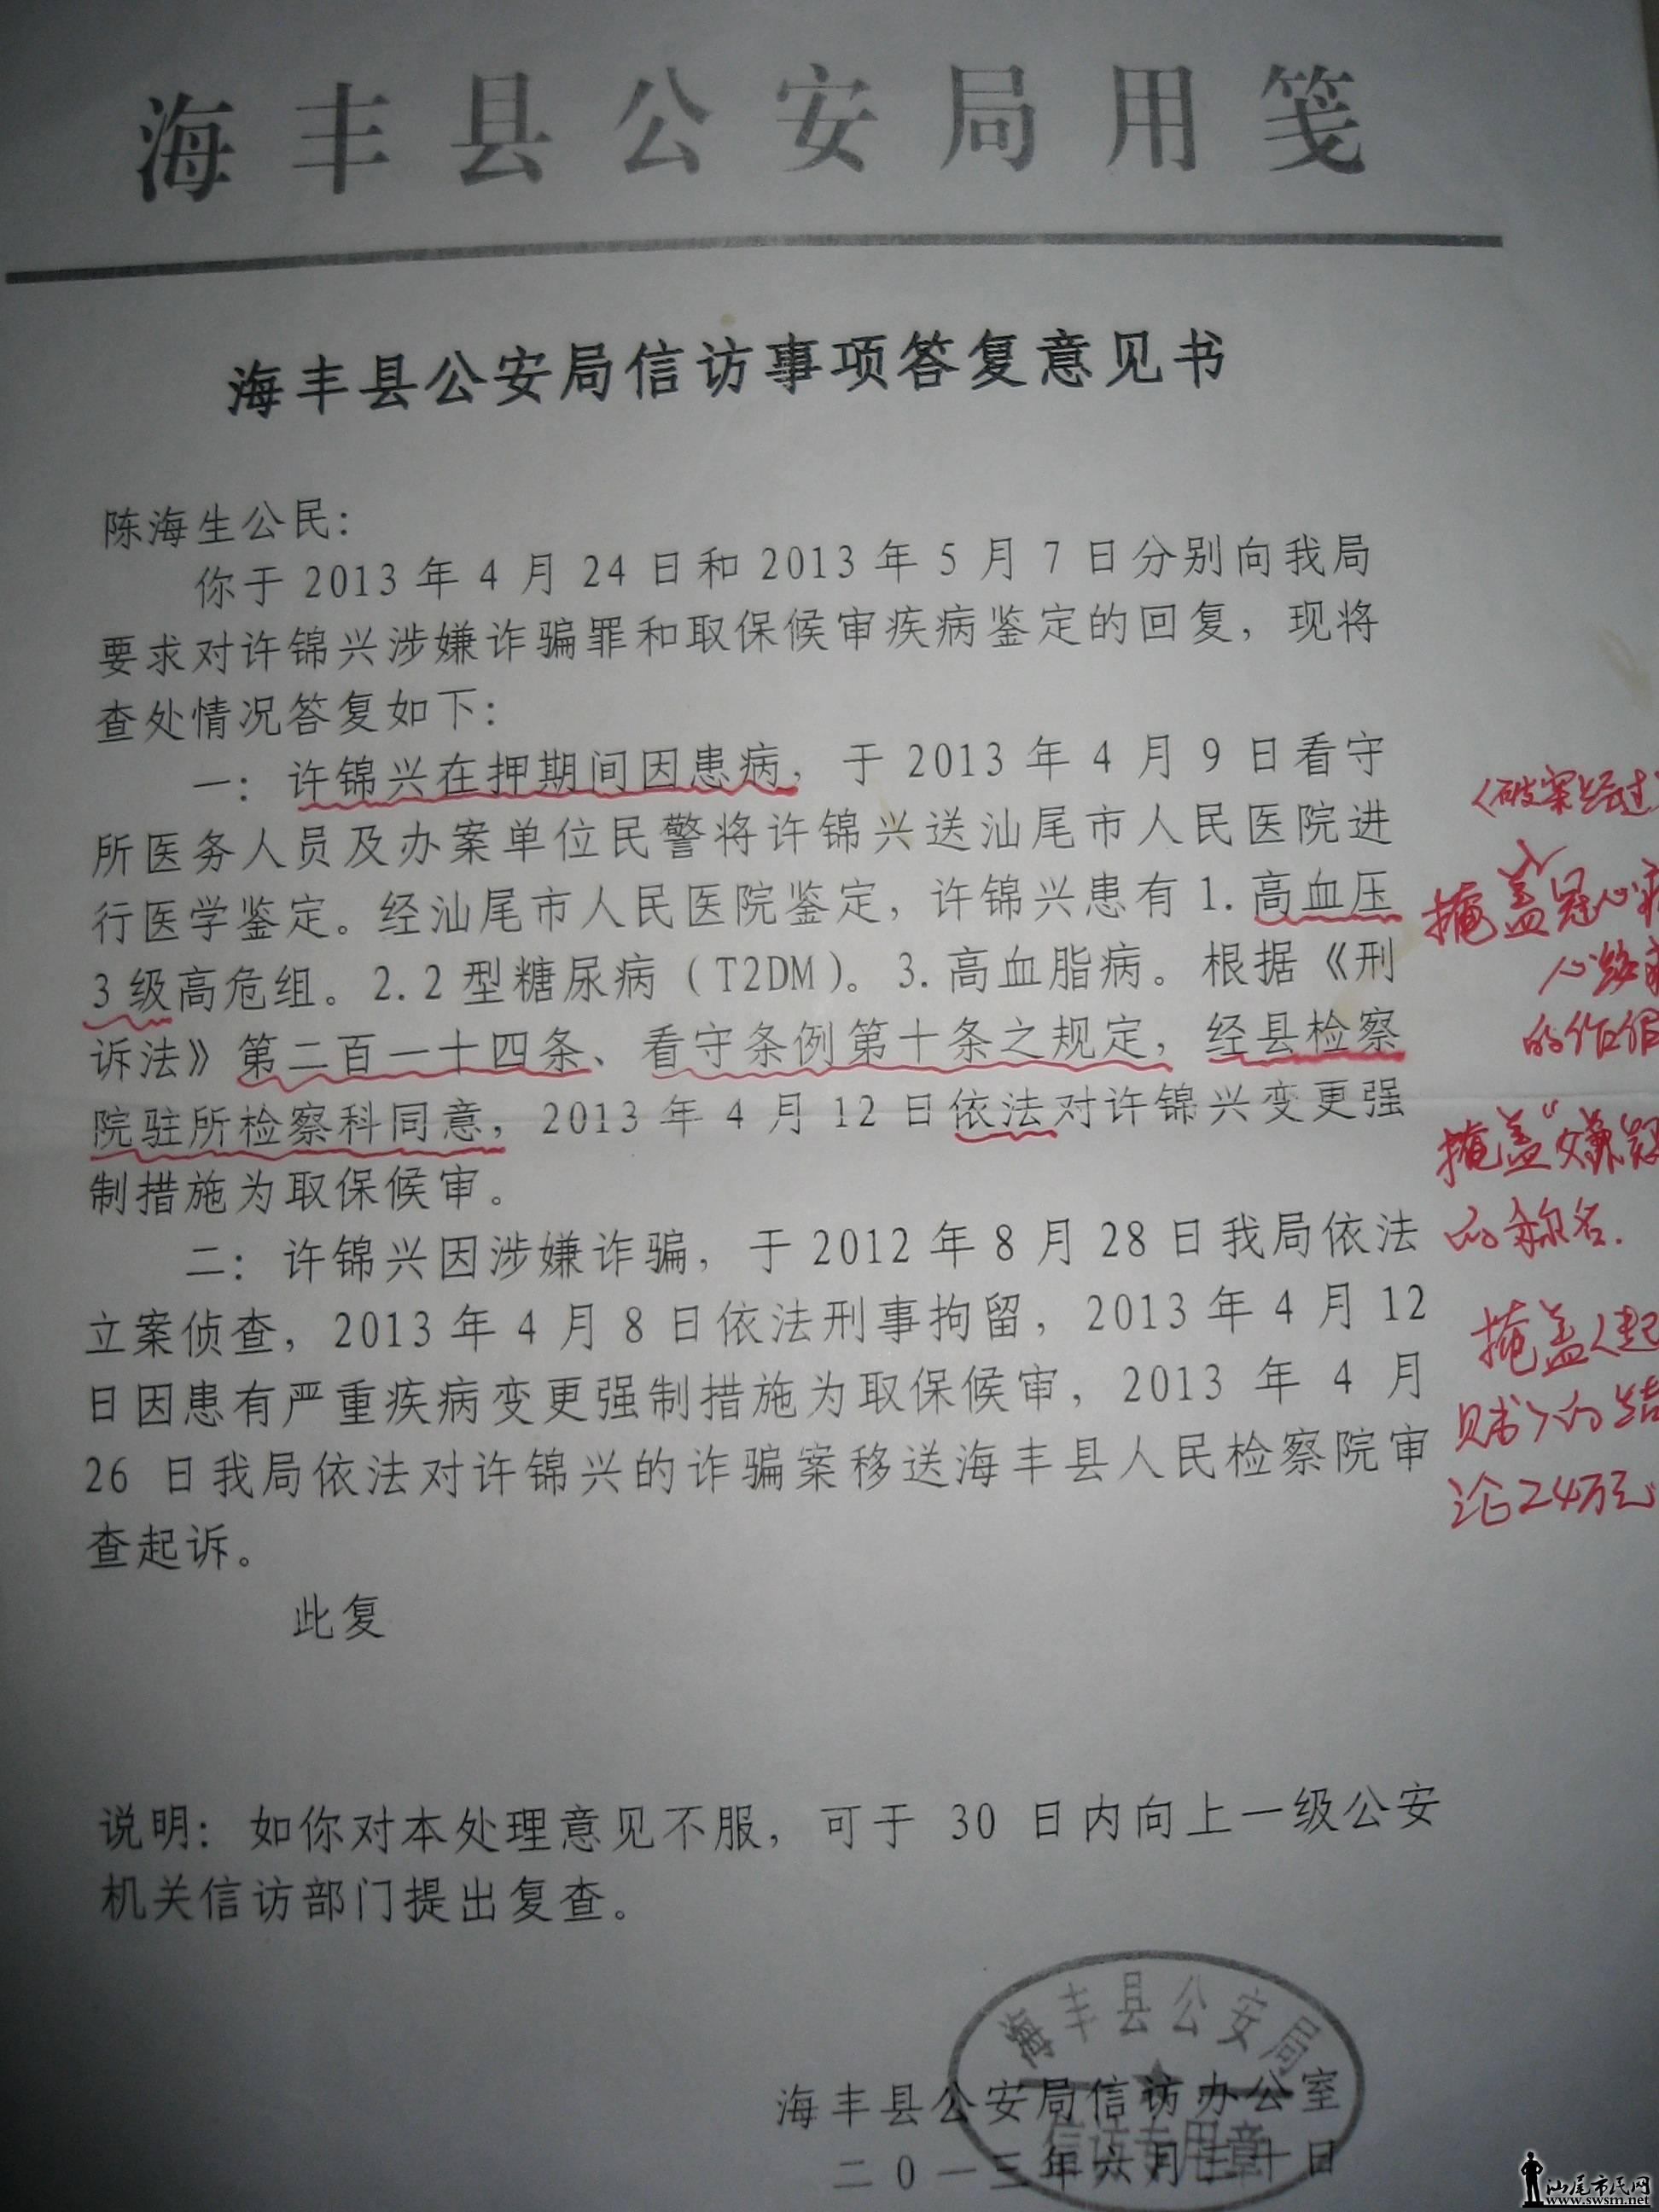 海丰县公安局用笺
海丰县公安局信访事项答复意见书
陈海生公民：
你于2013年4月24日和2013年5月7日分别向我局
要求对许锦兴涉嫌诈骗罪和取保候审疾病鉴定的回复，现将
查处情况答复如下：
一：许锦兴在押期间因患病，于2013年4月9日看守
所医务人员及办案单位民警将许锦兴送汕尾市人民医院进
行医学鉴定。经汕尾市人民医院鉴定，许锦兴患有1.高血压
3级高危组。2.2型糖尿病（T2DM）。3.高血脂病。根据《刑
诉法》第二百一十四条、看守条例第十条之规定，经县检察
院驻所检察科同意，2013年4月12日依法对许锦兴变更强
制措施为取保候审。
二：许锦兴因涉嫌诈骗，于2012年8月28日我局依法
立案侦查，2013年4月8日依法刑事拘留，2013年4月12
日因患有严重疾病变更强制措施为取保候审，2013年4月
26日我局依法对许锦兴的诈骗案移送海丰县人民检察院审
查起诉。
此复
说明：如你对本处理意见不服，可于30日内向上一级公安
机关信访部门提出复查。
海丰县公安局信访办公室
二0一三年六月二十日
海丰县公安局
信访专用章
〈破案经过
掩盖冠心病
的作假
掩盖"嫌疑
的称名.
掩盖〈起
财〉的结
论24万元
汕尾市民网
www.swsm.net